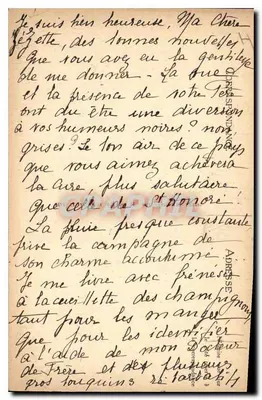 Je suis bien heureuse, Ma Chère
Zézette, des bonnes nouvelles
que vous avez eu la gentillesse
de me donner - La vue
et la présence de notre Père
ont dû être une diversion
à vos humeurs noires? non
grises? Le bon air de ce pays
que vous aimez achèvera
la cure plus salutaire
que celle de St Honoré!
La pluie presque constante
prive la campagne de
son charme accoutumé.
Je me livre avec frénésie
à la cueillette des champignons
tant pour les manger
que pour les identifier
à l'aide de mon Docteur
de Frère et des plusieurs
gros bouquins
CORRESPONDANCE
ADRESSE